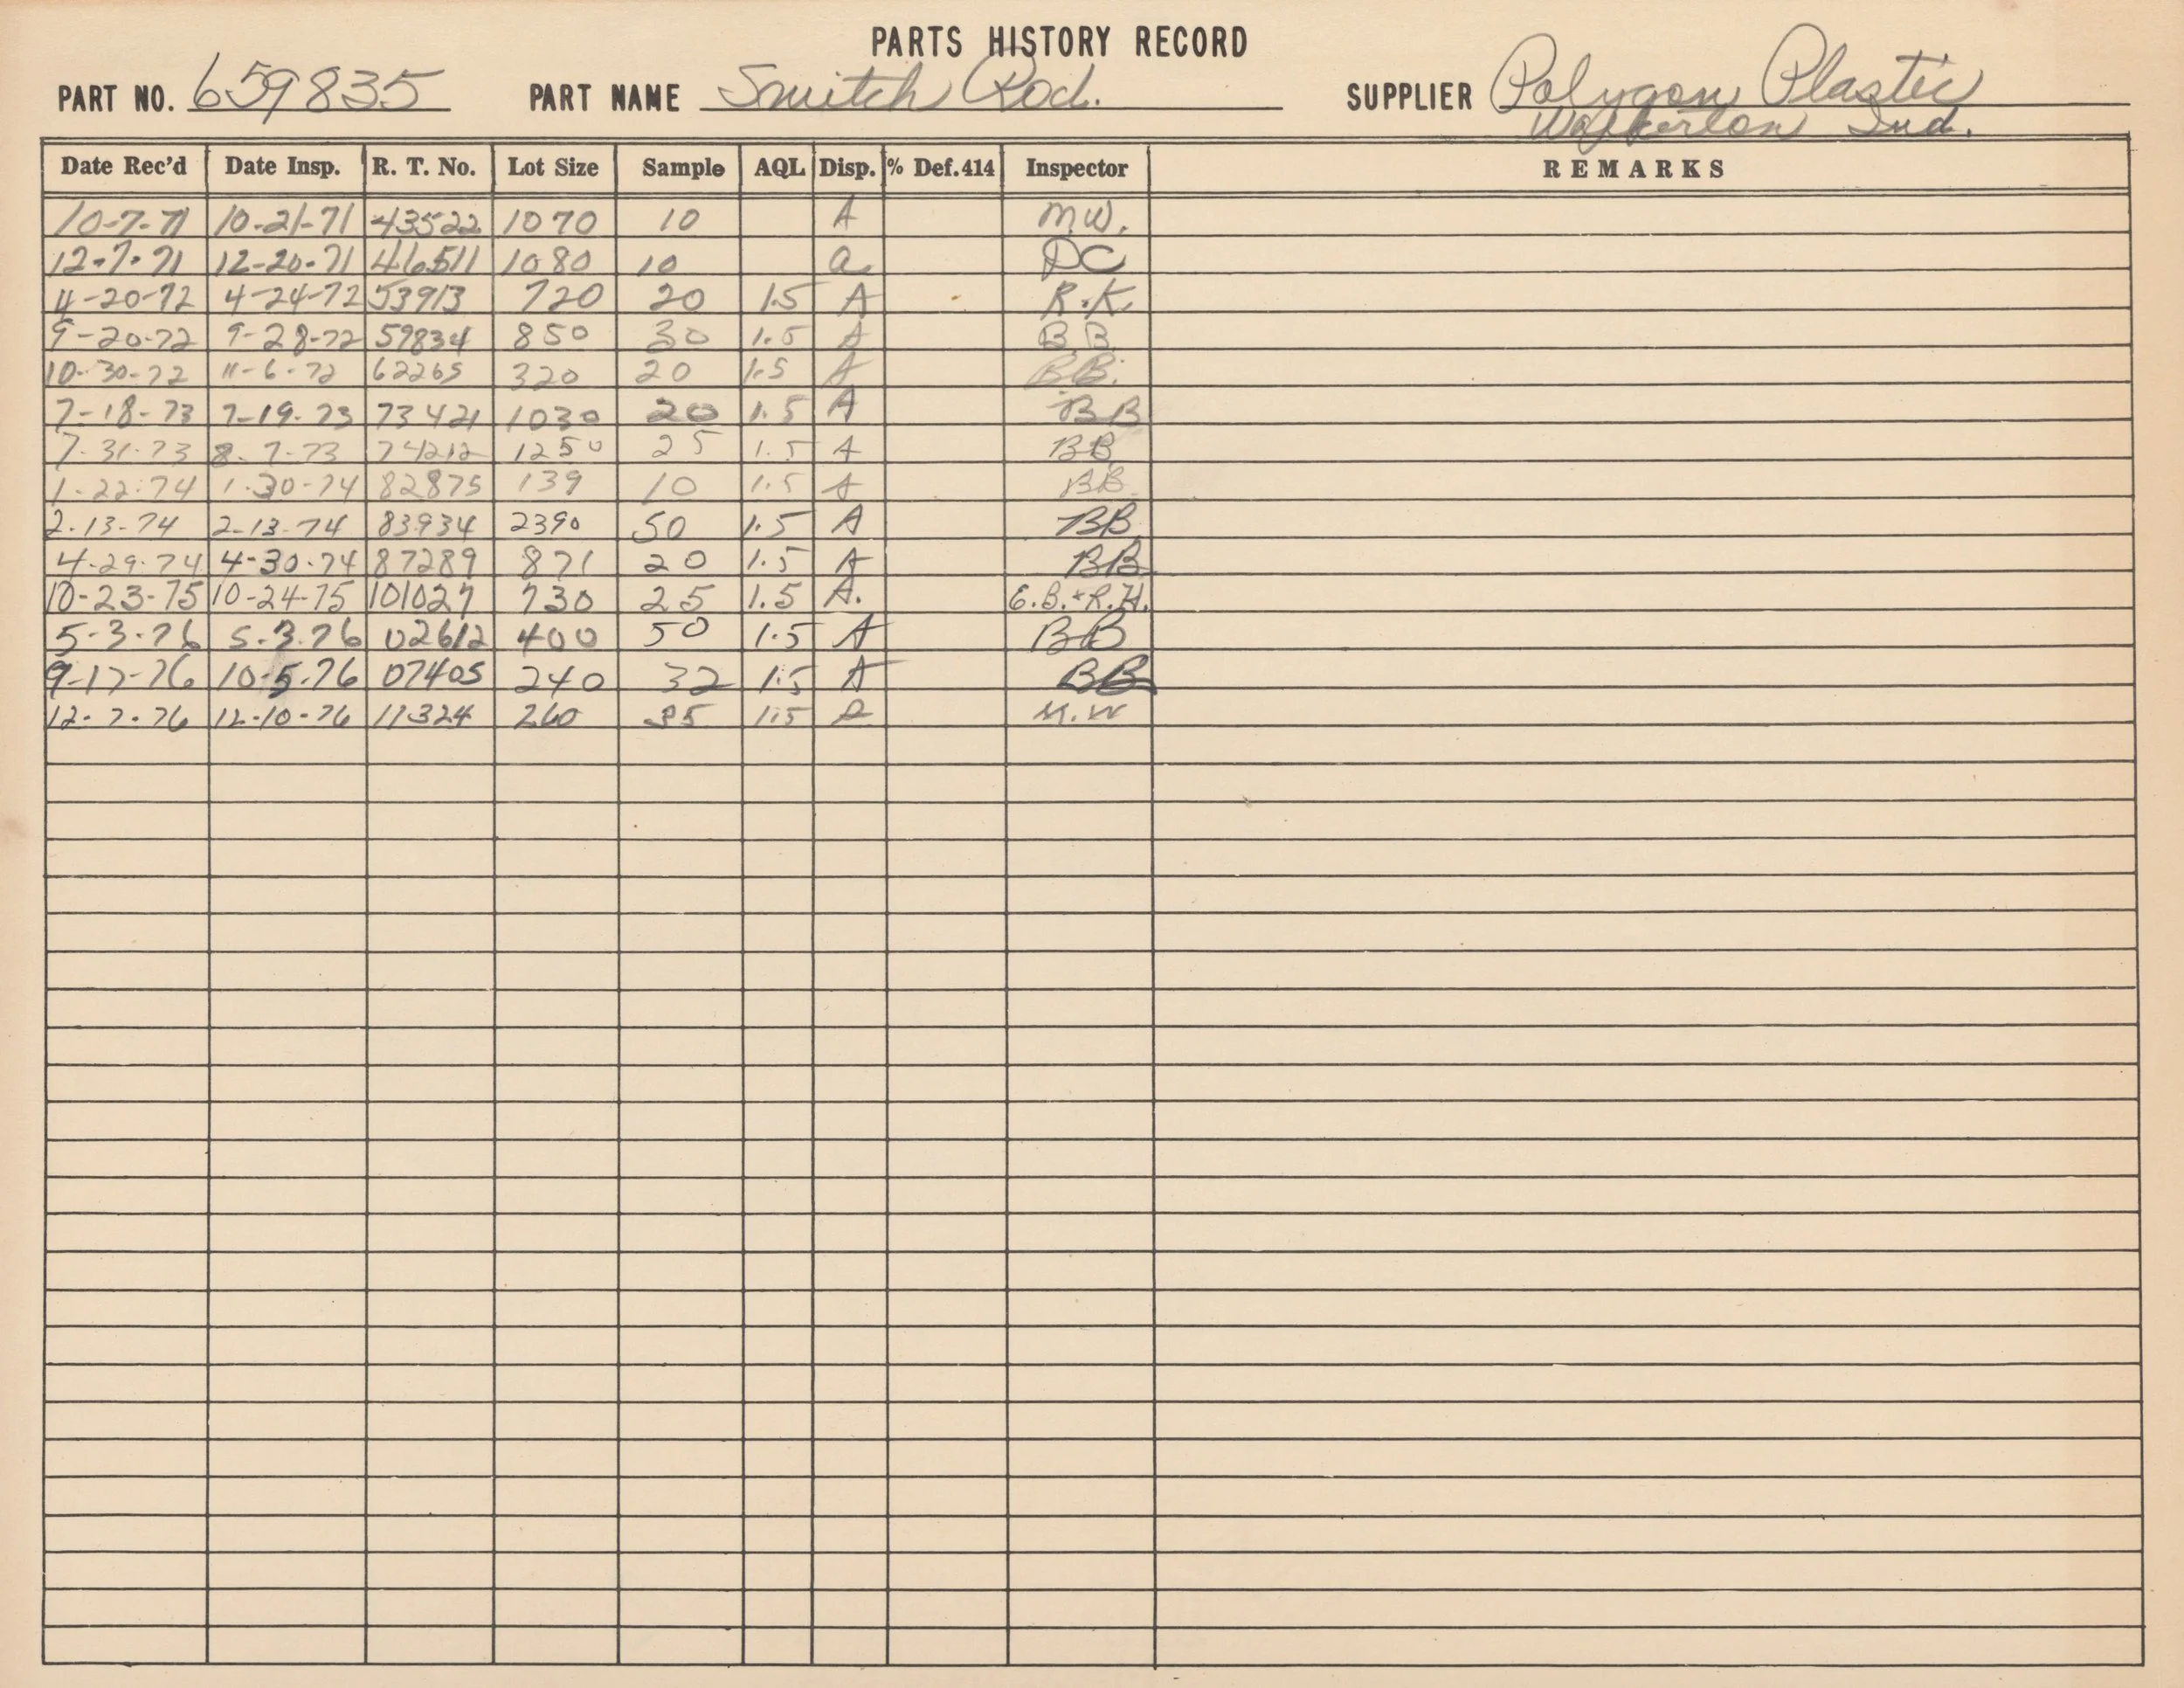 PARTS HISTORY RECORD
PART NO. 659835 PART NAME Switch Rod. SUPPLIER Polygon Plastic
Walkerton Ind.
Date Rec'd Date Insp. R. T. No. Lot Size Sample AQL Disp. % Def.414 Inspector REMARKS
10-7-71 10-21-71 43522 1070 10 A M.W.
12-7-71 12-20-71 46511 1080 10 a DC
4-20-72 4-24-72 53913 720 20 1.5 A R.K.
9-20-72 9-28-72 59834 850 30 1.5 A B.B.
10-30-72 11-6-72 62265 320 20 1.5 A BB.
7-18-73 7-19-73 73421 1030 20 1.5 A BB
7-31-73 8-7-73 74212 1250 25 1.5 A BB
1-22-74 1-30-74 82875 139 10 1.5 A BB
2-13-74 2-13-74 83934 2390 50 1.5 A BB
4-29-74 4-30-74 87289 871 20 1.5 A BB
10-23-75 10-24-75 101027 730 25 1.5 A. G.B.+R.H.
5-3-76 5-3-76 02612 400 50 1.5 A BB
9-17-76 10-5-76 07405 240 32 1.5 A BB
12-7-76 12-10-76 11324 260 1.5 A M.W